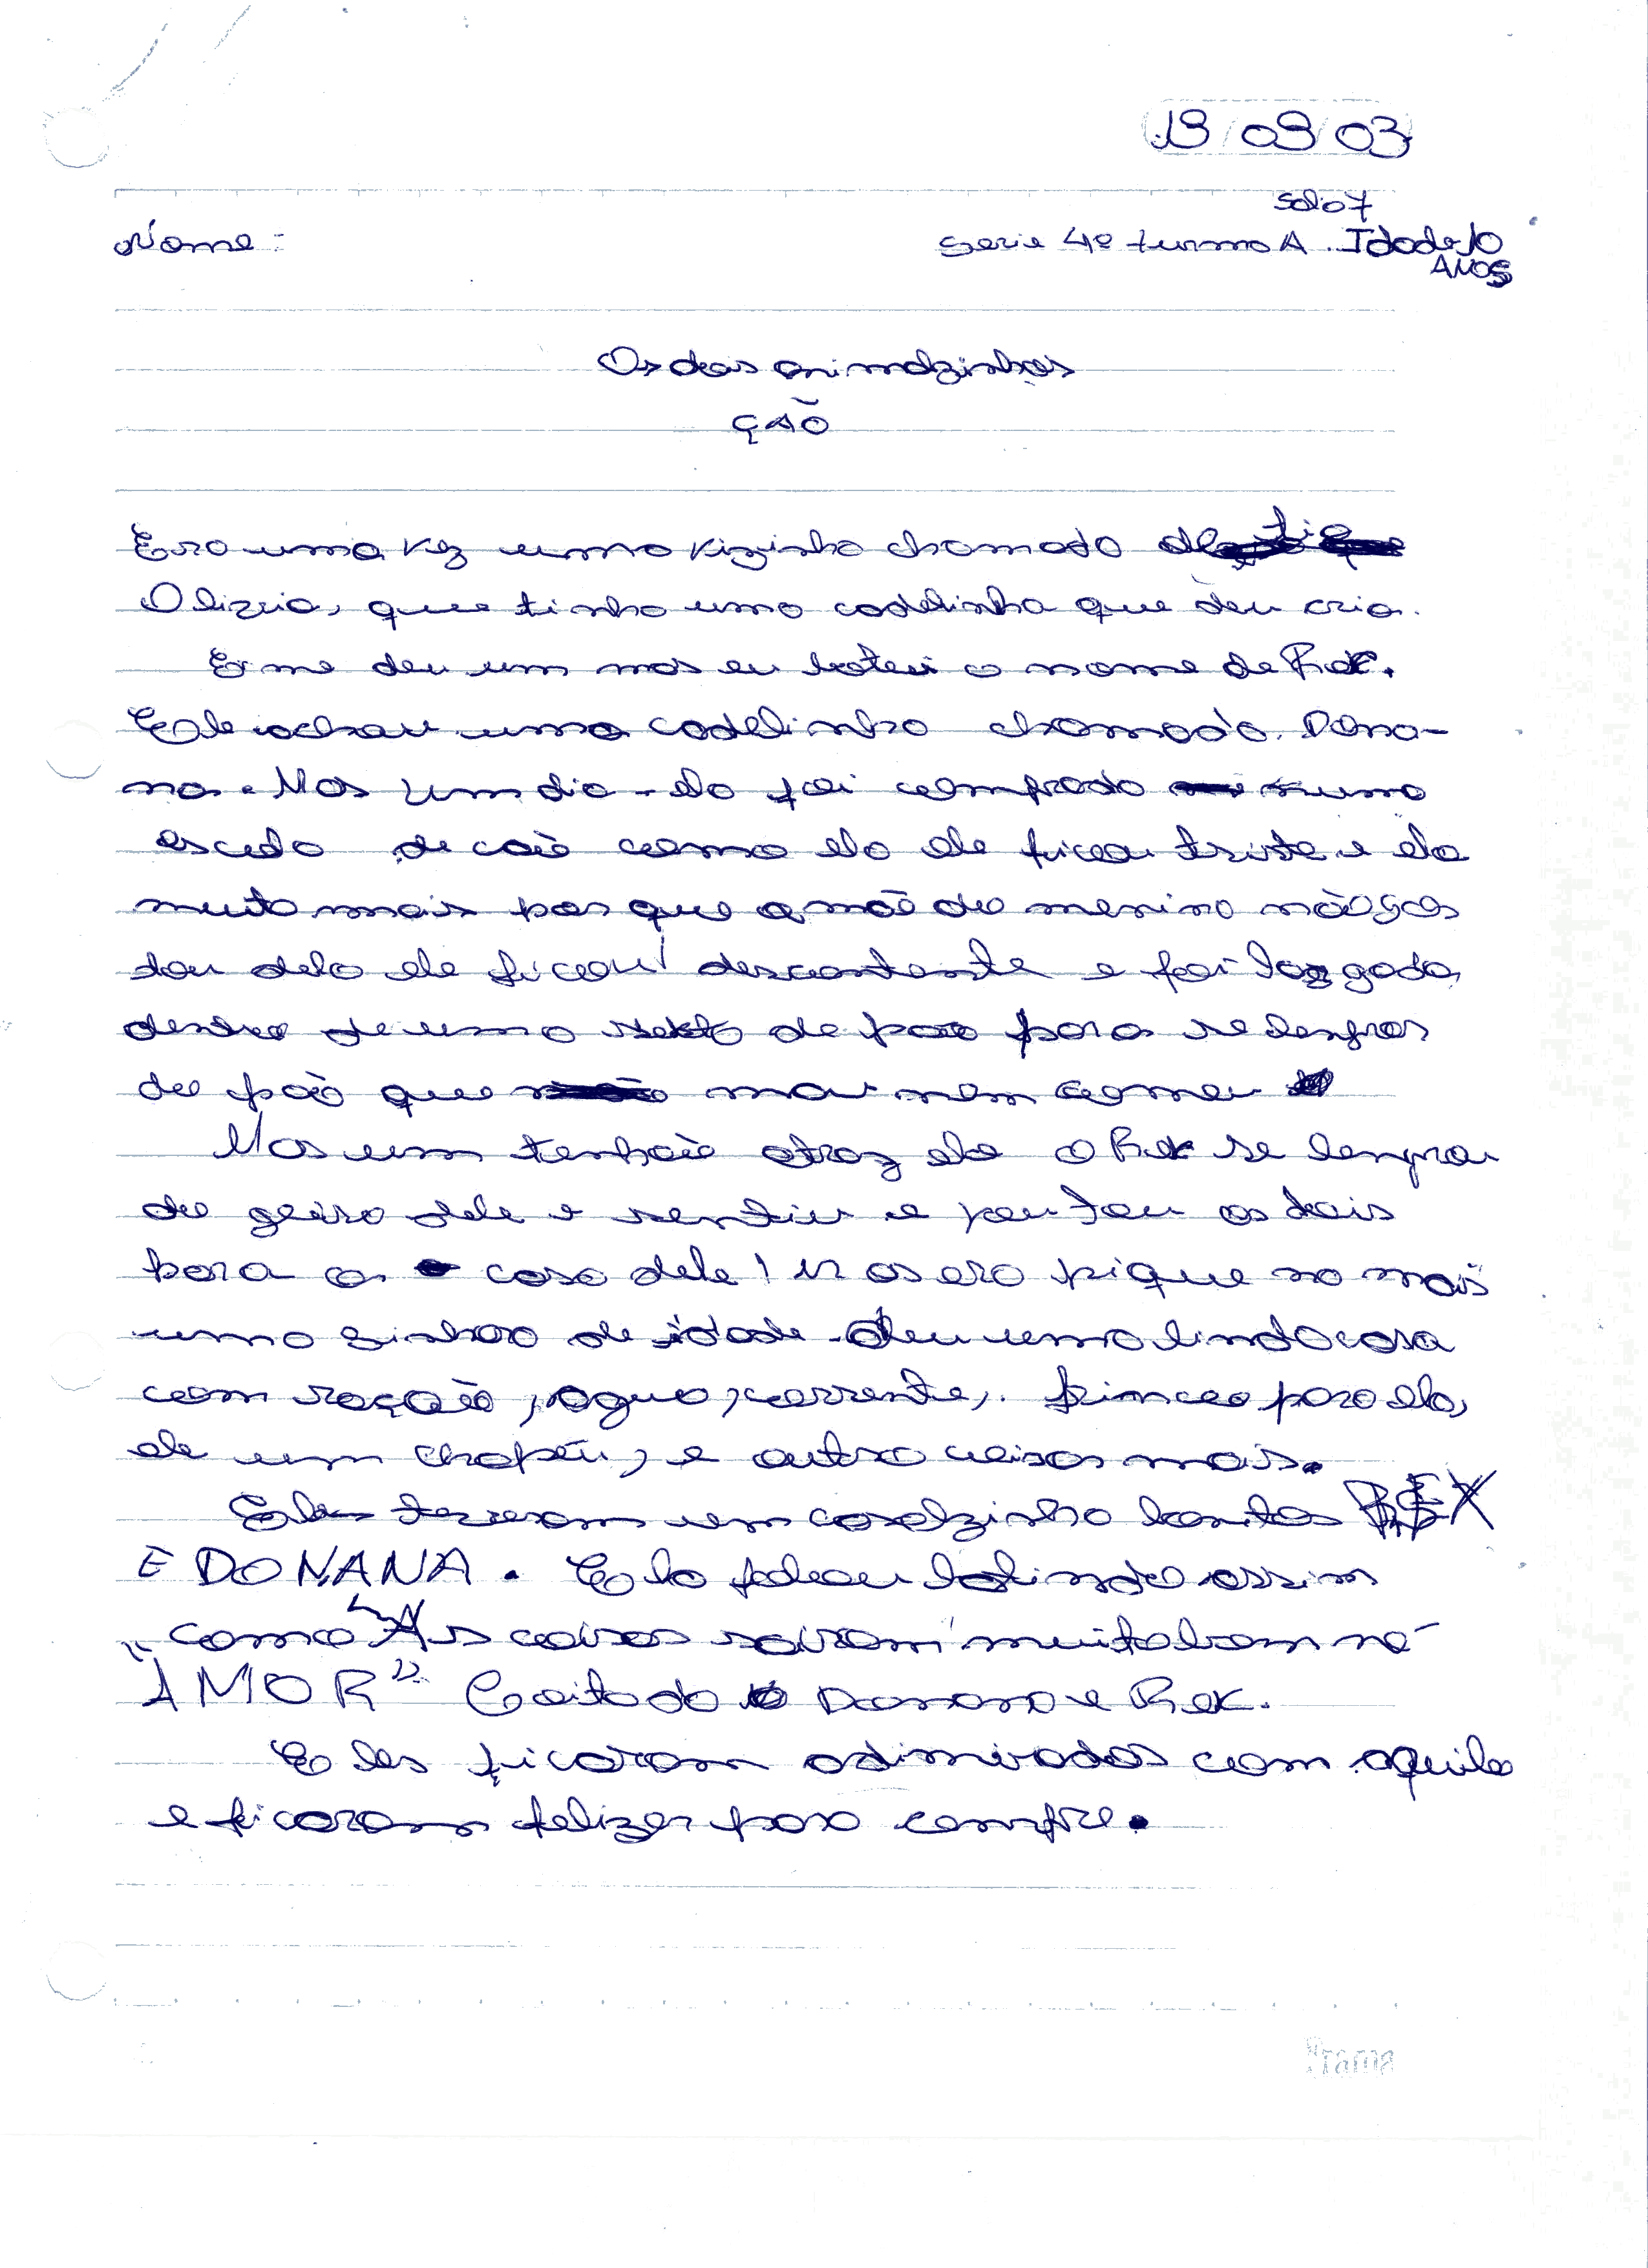 19/09/03
Sala 7
Nome: Serie 4º turma A. Idade 10
ANOS
Os dois animalzinhos
ÇÃO
Era uma vez uma vizinha chamada
Olizia, que tinha uma cadelinha que deu cria.
E me deu um mas eu botei o nome de Rex.
Ele achou uma cadelinha chamada. Dona-
na. Mas um dia ela foi comprada numa
escudo de cão como ela ele ficou triste e ela
muito mais por que a mãe do menino não gos
tou dela ele ficou descontente e foi largada
dentro de uma de pão para se lenprar
do pão que mau nem comeu
Mas um tenpão atraz ela o Rex se lenprou
do geiro dele e sentiu e juntou os dois
bora a casa dele! Mas era piquena mais
uma sinhora de idade deu uma linda casa
com ração, agua, corrente, brinco para ela,
ele um chapéu, e outra coisas mais.
Eles tiveram um casalzinho bonitos REX
E DONANA. Ela falou latindo assim
"como As coisas sairam muita bem né
AMOR" Coitado Danana e Rex.
Eles ficaram adimirados com aquilo
e ficaram felizes para cempre.